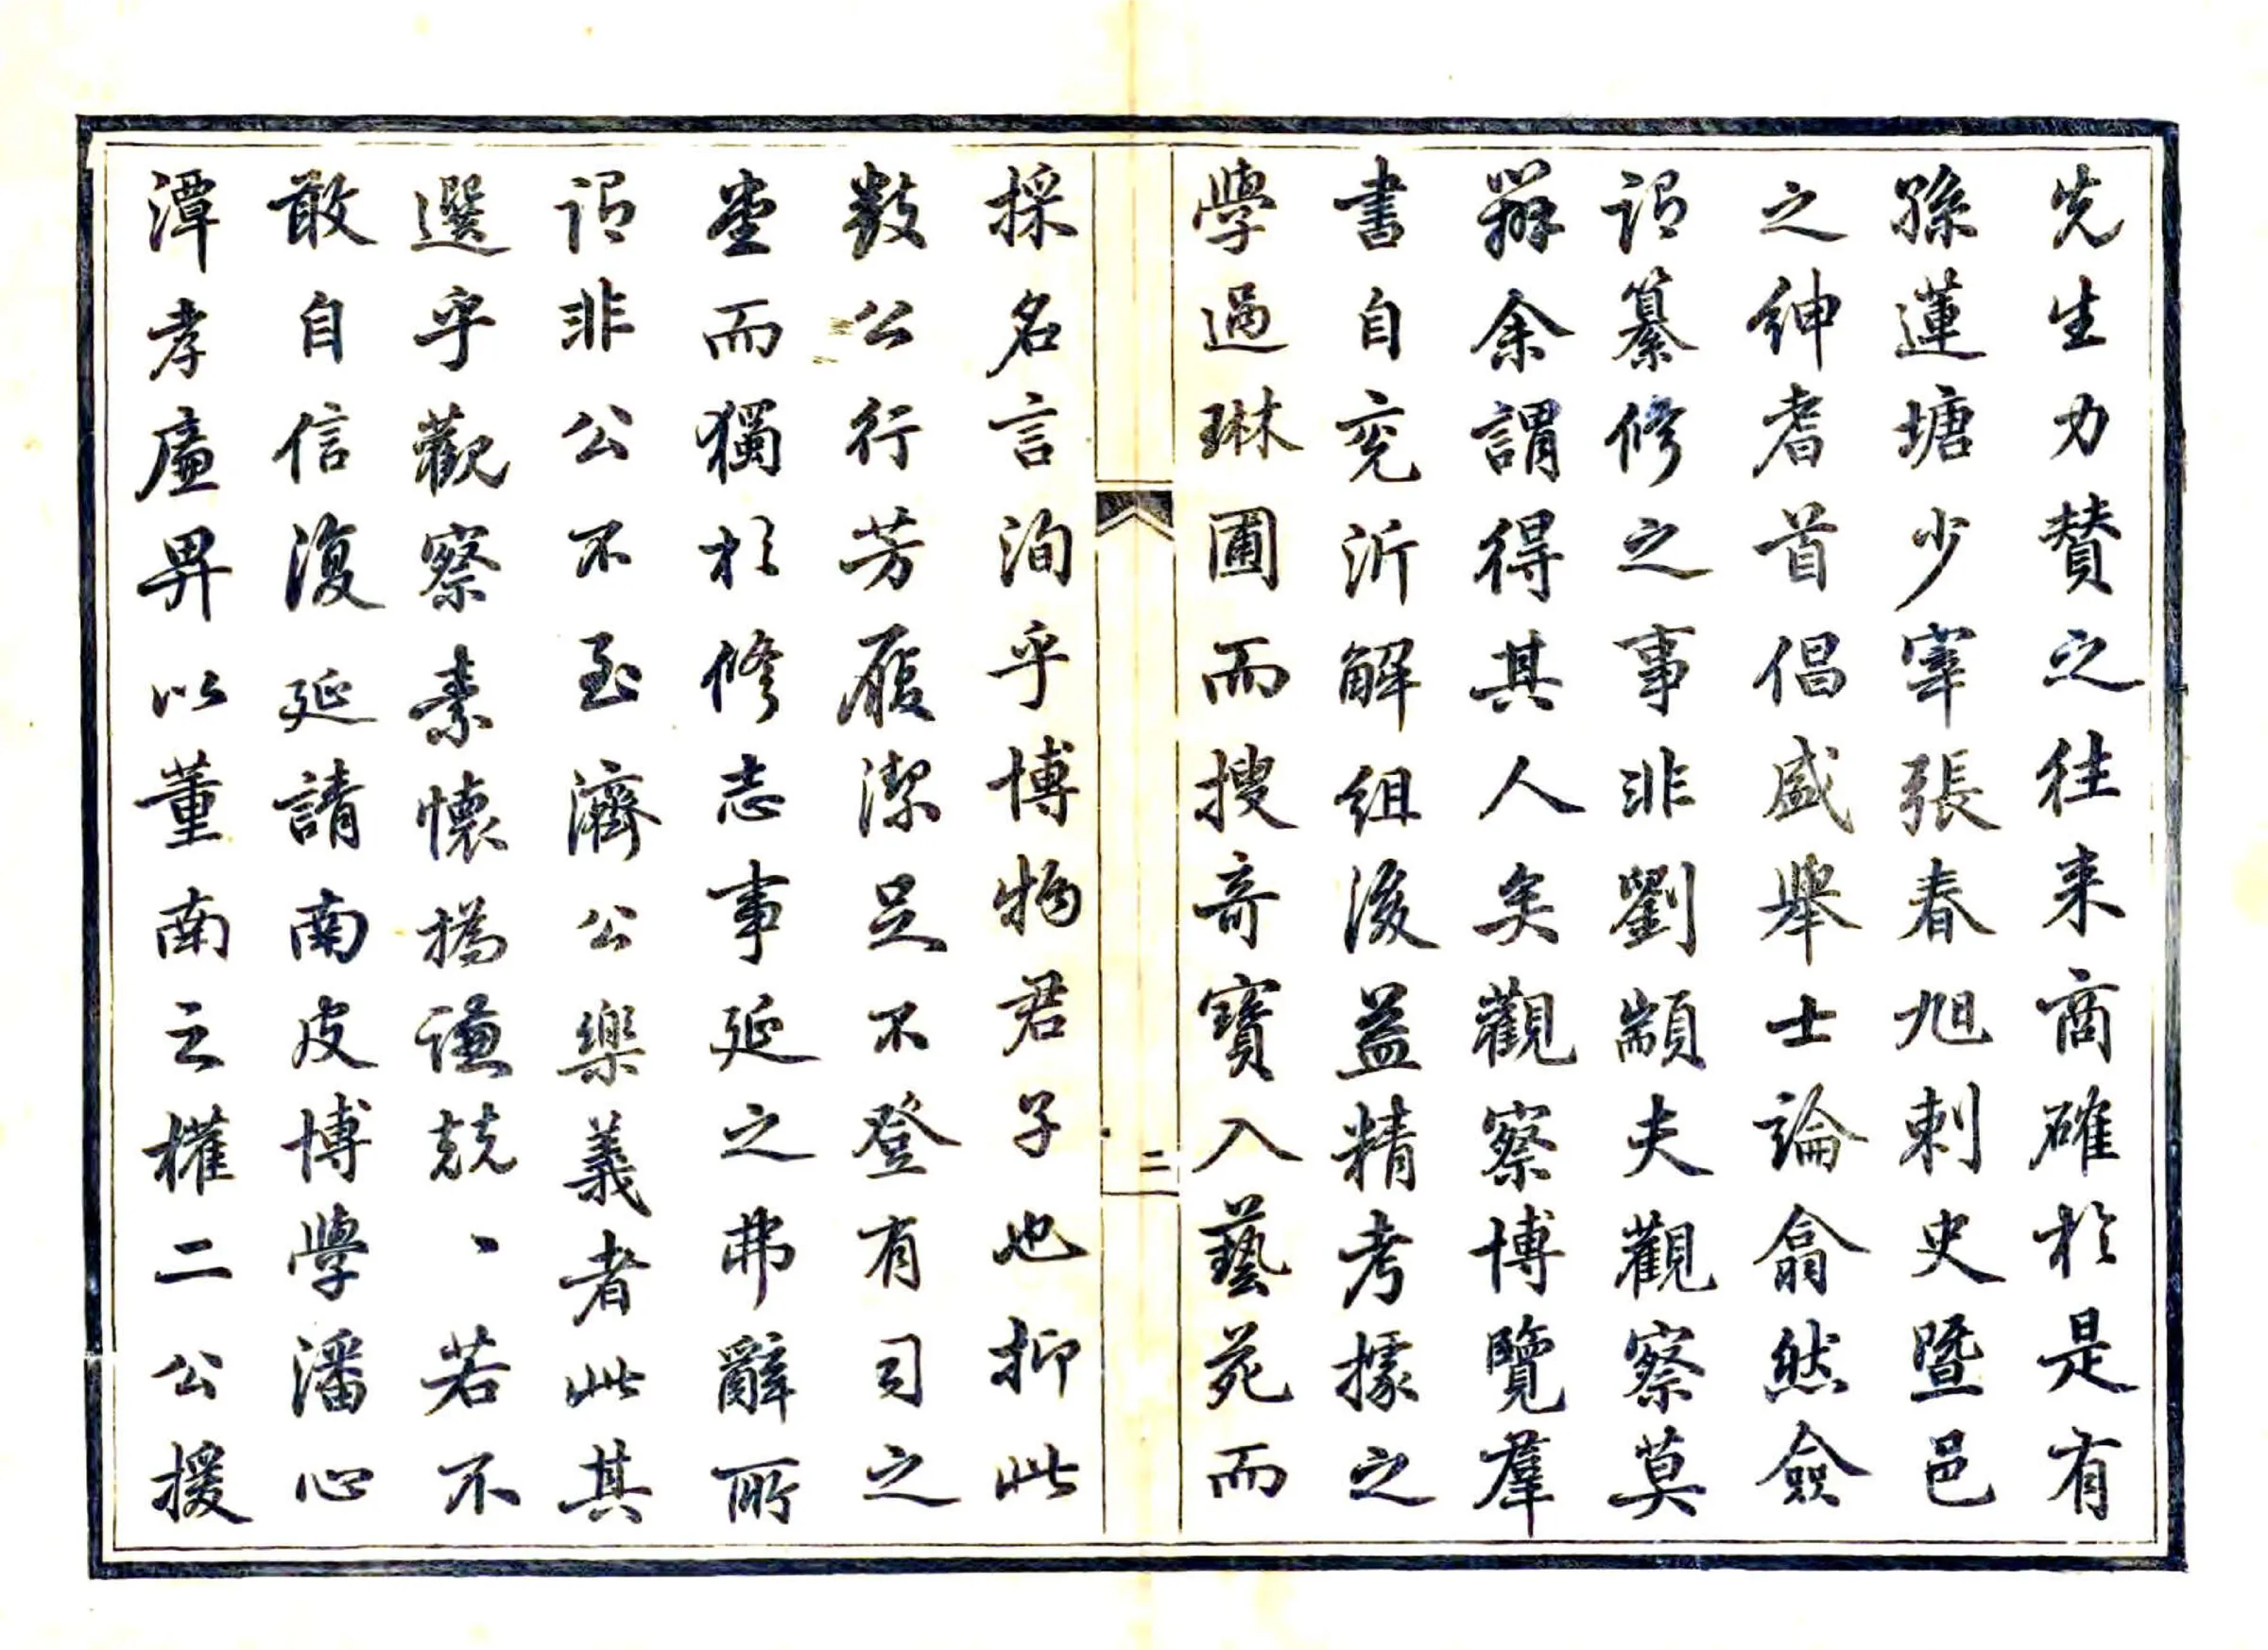 先生力贊之往来商確於是有
孫蓮塘少宰張春旭刺史暨邑
之紳耆首倡盛舉士論翕然僉
謂纂修之事非劉顓夫觀察莫
辦余謂得其人矣觀察博覽羣
書自兖沂解組後益精考據之
學過琳圃而搜奇寶入藝苑而
二
採名言洵乎博物君子也抑此
數公行芳履潔足不登有司之
堂而獨於修志事延之弗辭所
謂非公不至濟公樂義者此其
選乎觀察素懷撝謙兢、若不
敢自信復延請南皮博學潘心
潭孝廉畀以董南之權二公援